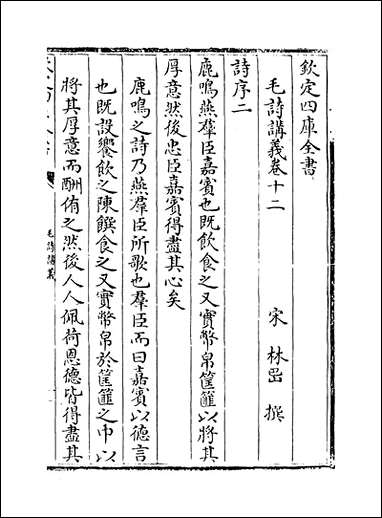 欽定四庫全書
毛詩講義卷十二
宋 林岊 撰
詩序二
鹿鳴燕羣臣嘉賓也既飲食之又實幣帛筐篚以將其
厚意然後忠臣嘉賓得盡其心矣
鹿鳴之詩乃燕羣臣所歌也羣臣而曰嘉賓以德言
也既設饗飲之陳饌食之又實幣帛於筐篚之中以
將其厚意而酬侑之然後人人佩荷恩德皆得盡其
毛詩講義